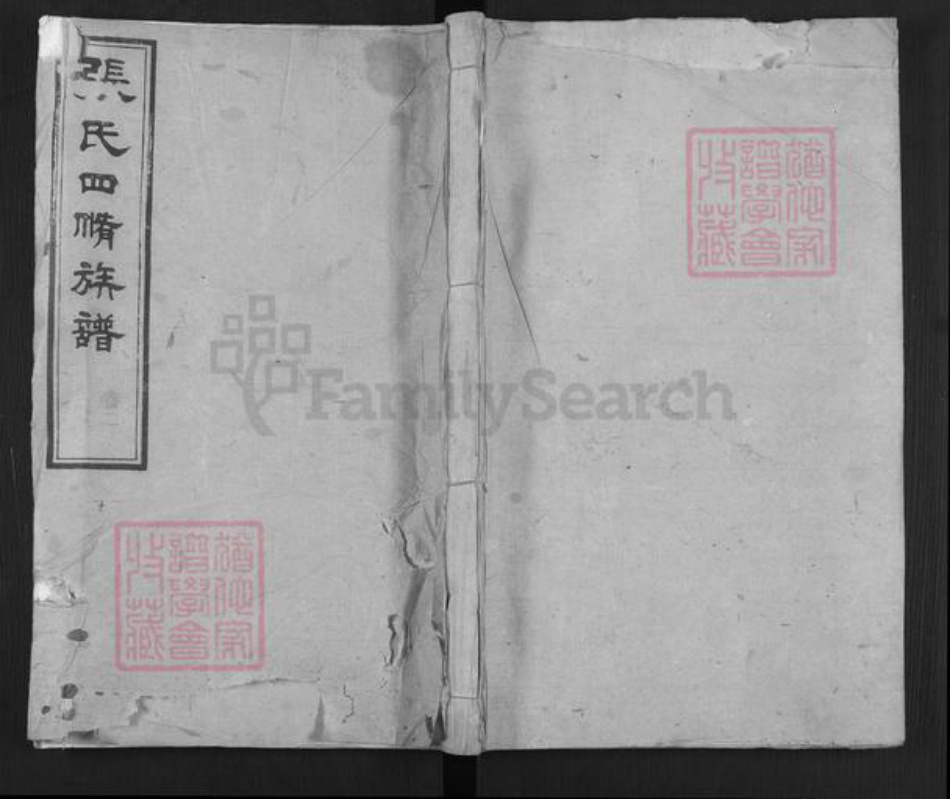 張氏四脩族譜
卷二
猶他家
譜學會
收藏
FamilySearch
猶他家
譜學會
收藏